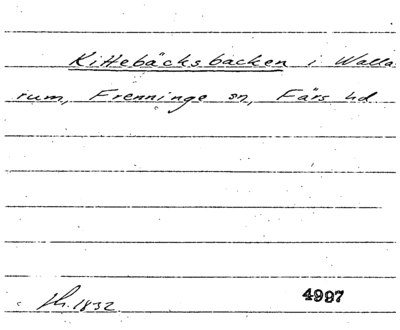 Kittebäcksbacken i Walla
rum, Frenninge sn, Färs hd
Th. 1832
4997